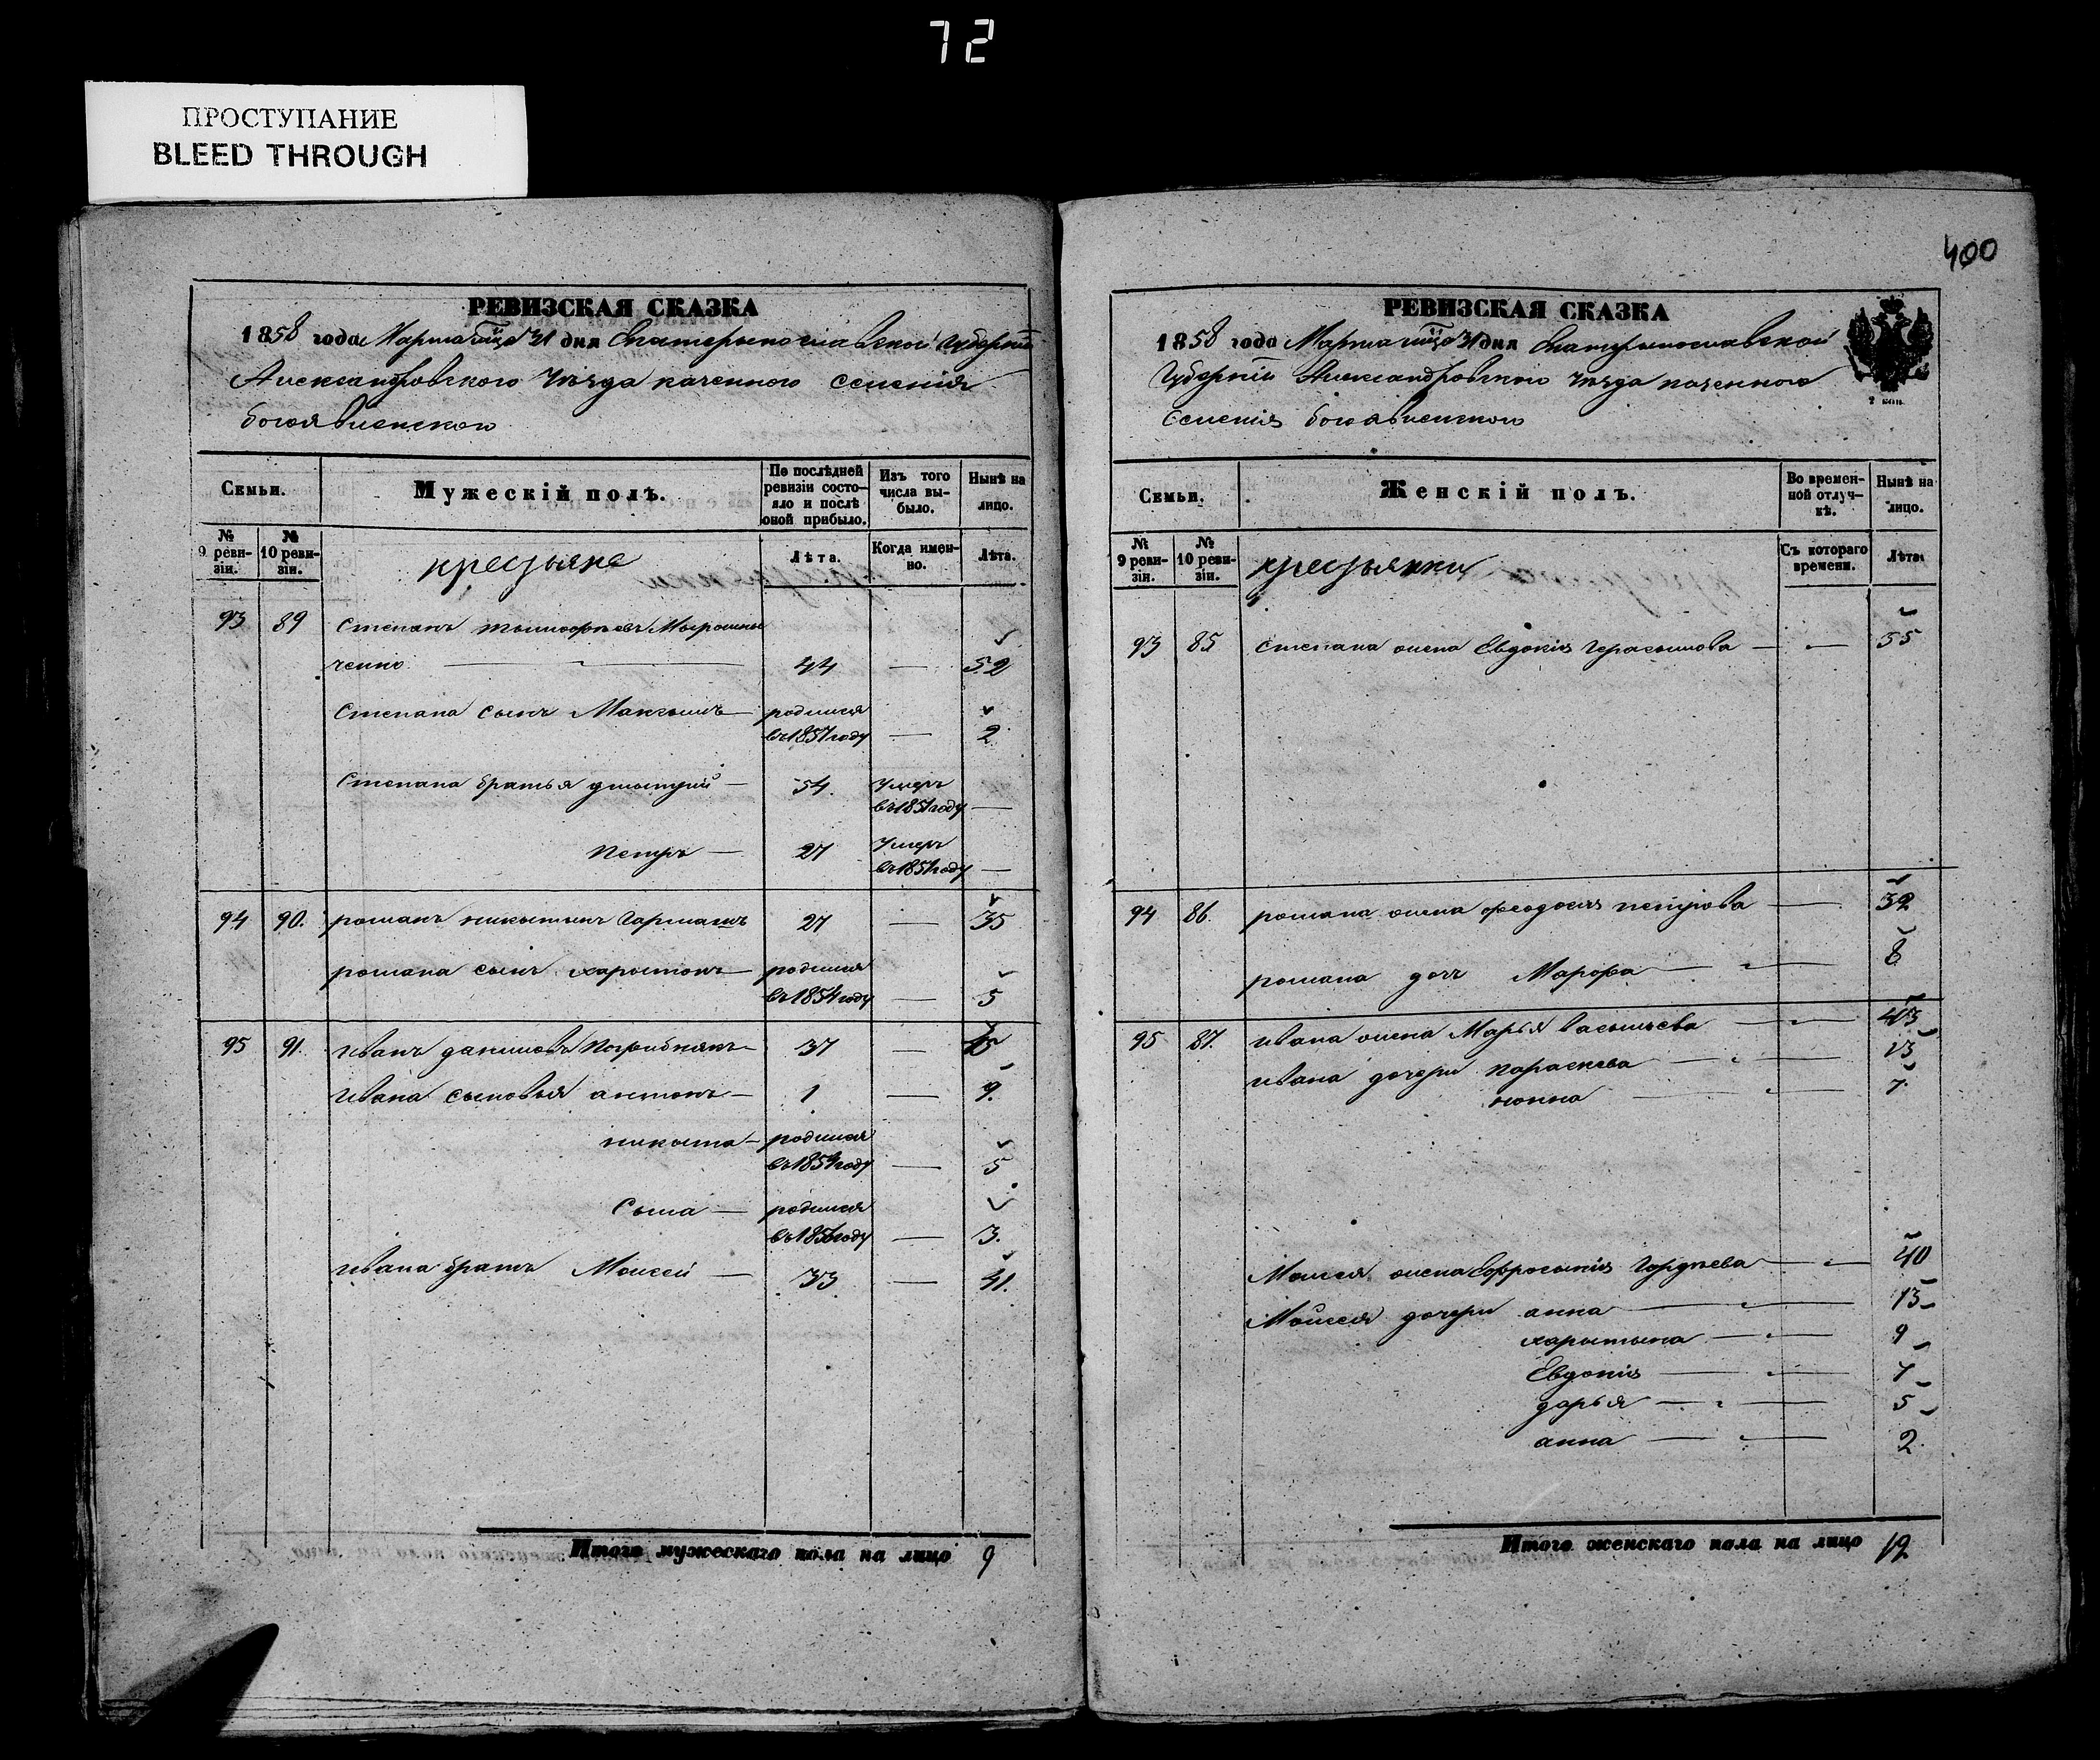 72
ПРОСТУПАНИЕ
BLEED THROUGH
РЕВИЗСКАЯ СКАЗКА
1858 года Марта мца 31 дня Екатерынославской Губерніи
Александровского уѣзда казенного селенія
богоявленского
Семьи.
Мужескій полъ.
По послѣдней ревизіи состояло и послѣ оной прибыло.
Изъ того числа выбыло.
Нынѣ на лицо.
№ 9 ревизіи.
№ 10 ревизіи.
крестьяне
Лѣта.
Когда именно.
Лѣта.
93 89 Степанъ тымофѣевъ Мырошны
ченко 44 52
Степана сынъ Максымъ родился
въ 1857 году 2
Степана братья дмытрій 54. Умеръ
въ 1851 году
Петръ 27 Умеръ
въ 1851 году
94 90. романъ никытинъ Гармашъ 27 35
романа сынъ харытонъ родился
въ 1854 году 5
95 91. иванъ даниловъ 37 45
ивана сыновья антонъ 1 9.
никыта родился
въ 1854 году 5
Сыма родился
въ 1856 году 3.
ивана братъ Моисей 33. 41.
Итого мужескаго пола на лицо 9
400
РЕВИЗСКАЯ СКАЗКА
1858 года Марта мца 31 дня Екатерынославской
Губерніи Александровского уѣзда казенного
селенія богоявленского
2 коп.
Семьи.
Женскій полъ.
Во временной отлучкѣ.
Нынѣ на лицо.
№ 9 ревизіи.
№ 10 ревизіи.
крестьянки
Съ котораго времени.
Лѣта.
93 85 Степана жена Евдокія Герасымова 55
94 86. романа жена феодосія петрова 32
романа дочь Марфа 8
95 87. ивана жена Марья васыльева 43
ивана дочери параскева 13
7.
Моисея жена Ефросынія Гордѣева 40
Моисея дочери анна 13
харытына 9
Евдокія 7
дарья 5
анна 2
Итого женскаго пола на лицо 12